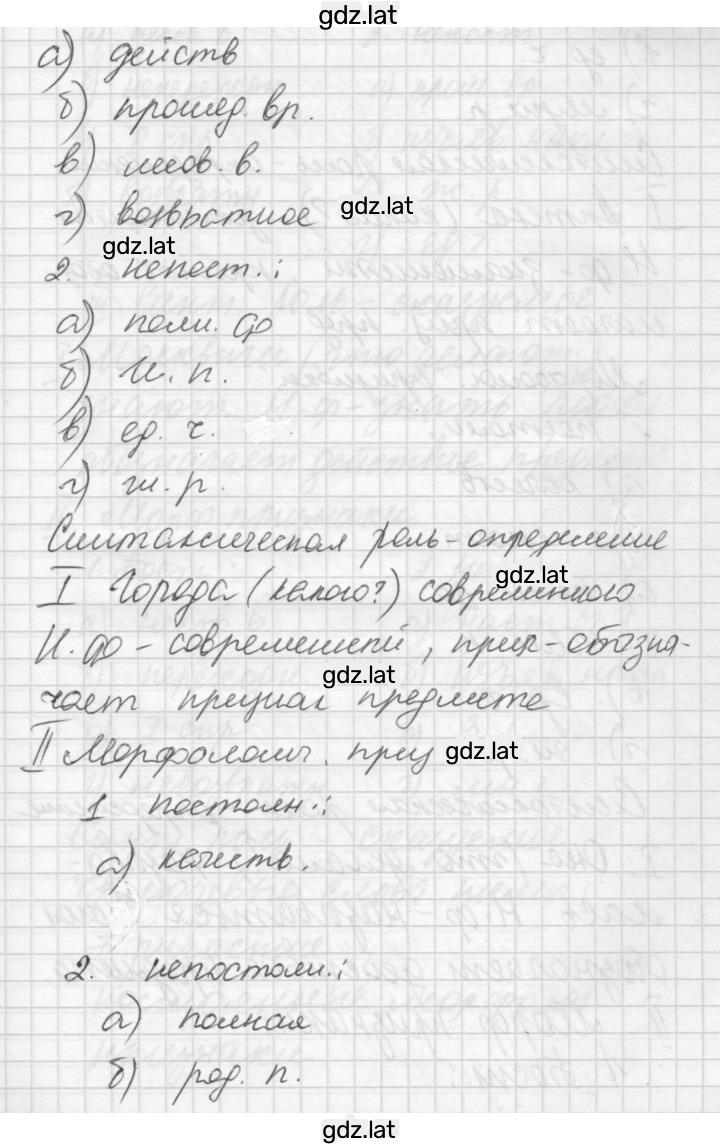 gdz.lat
а) действ
б) прошед. вр.
в) несов. в.
г) возвратное gdz.lat
gdz.lat
2. непост.:
а) полн. ф
б) И. п.
в) ед. ч.
г) ж. р.
Синтаксическая роль - определение
gdz.lat
I Города (какого?) современного
И. ф - современный, прил - обозна-
gdz.lat
чает признак предмета
II Морфологич. приз gdz.lat
1 постоян.:
а) качеств.
2. непостоян.:
а) полная
б) род. п.
gdz.lat